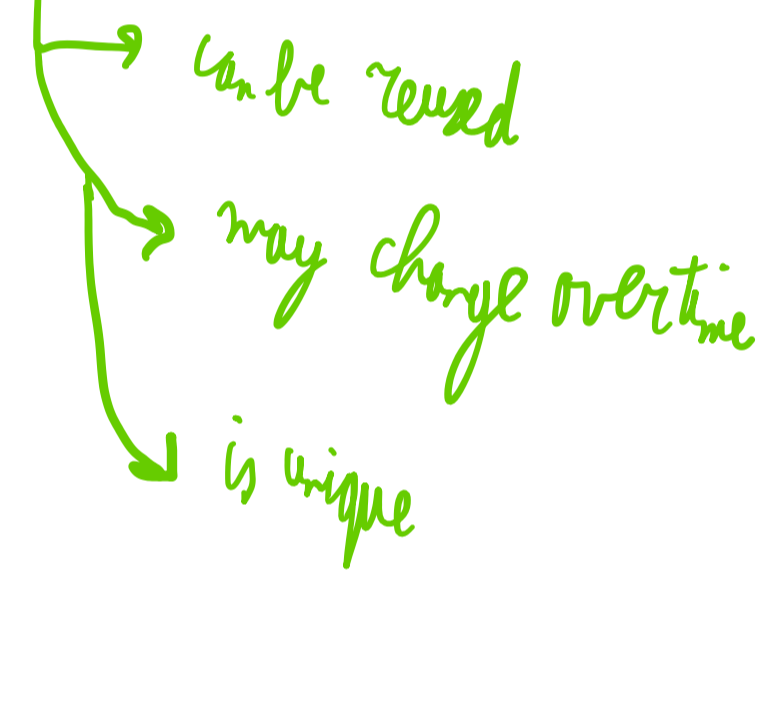 can be reused
may change overtime
is unique